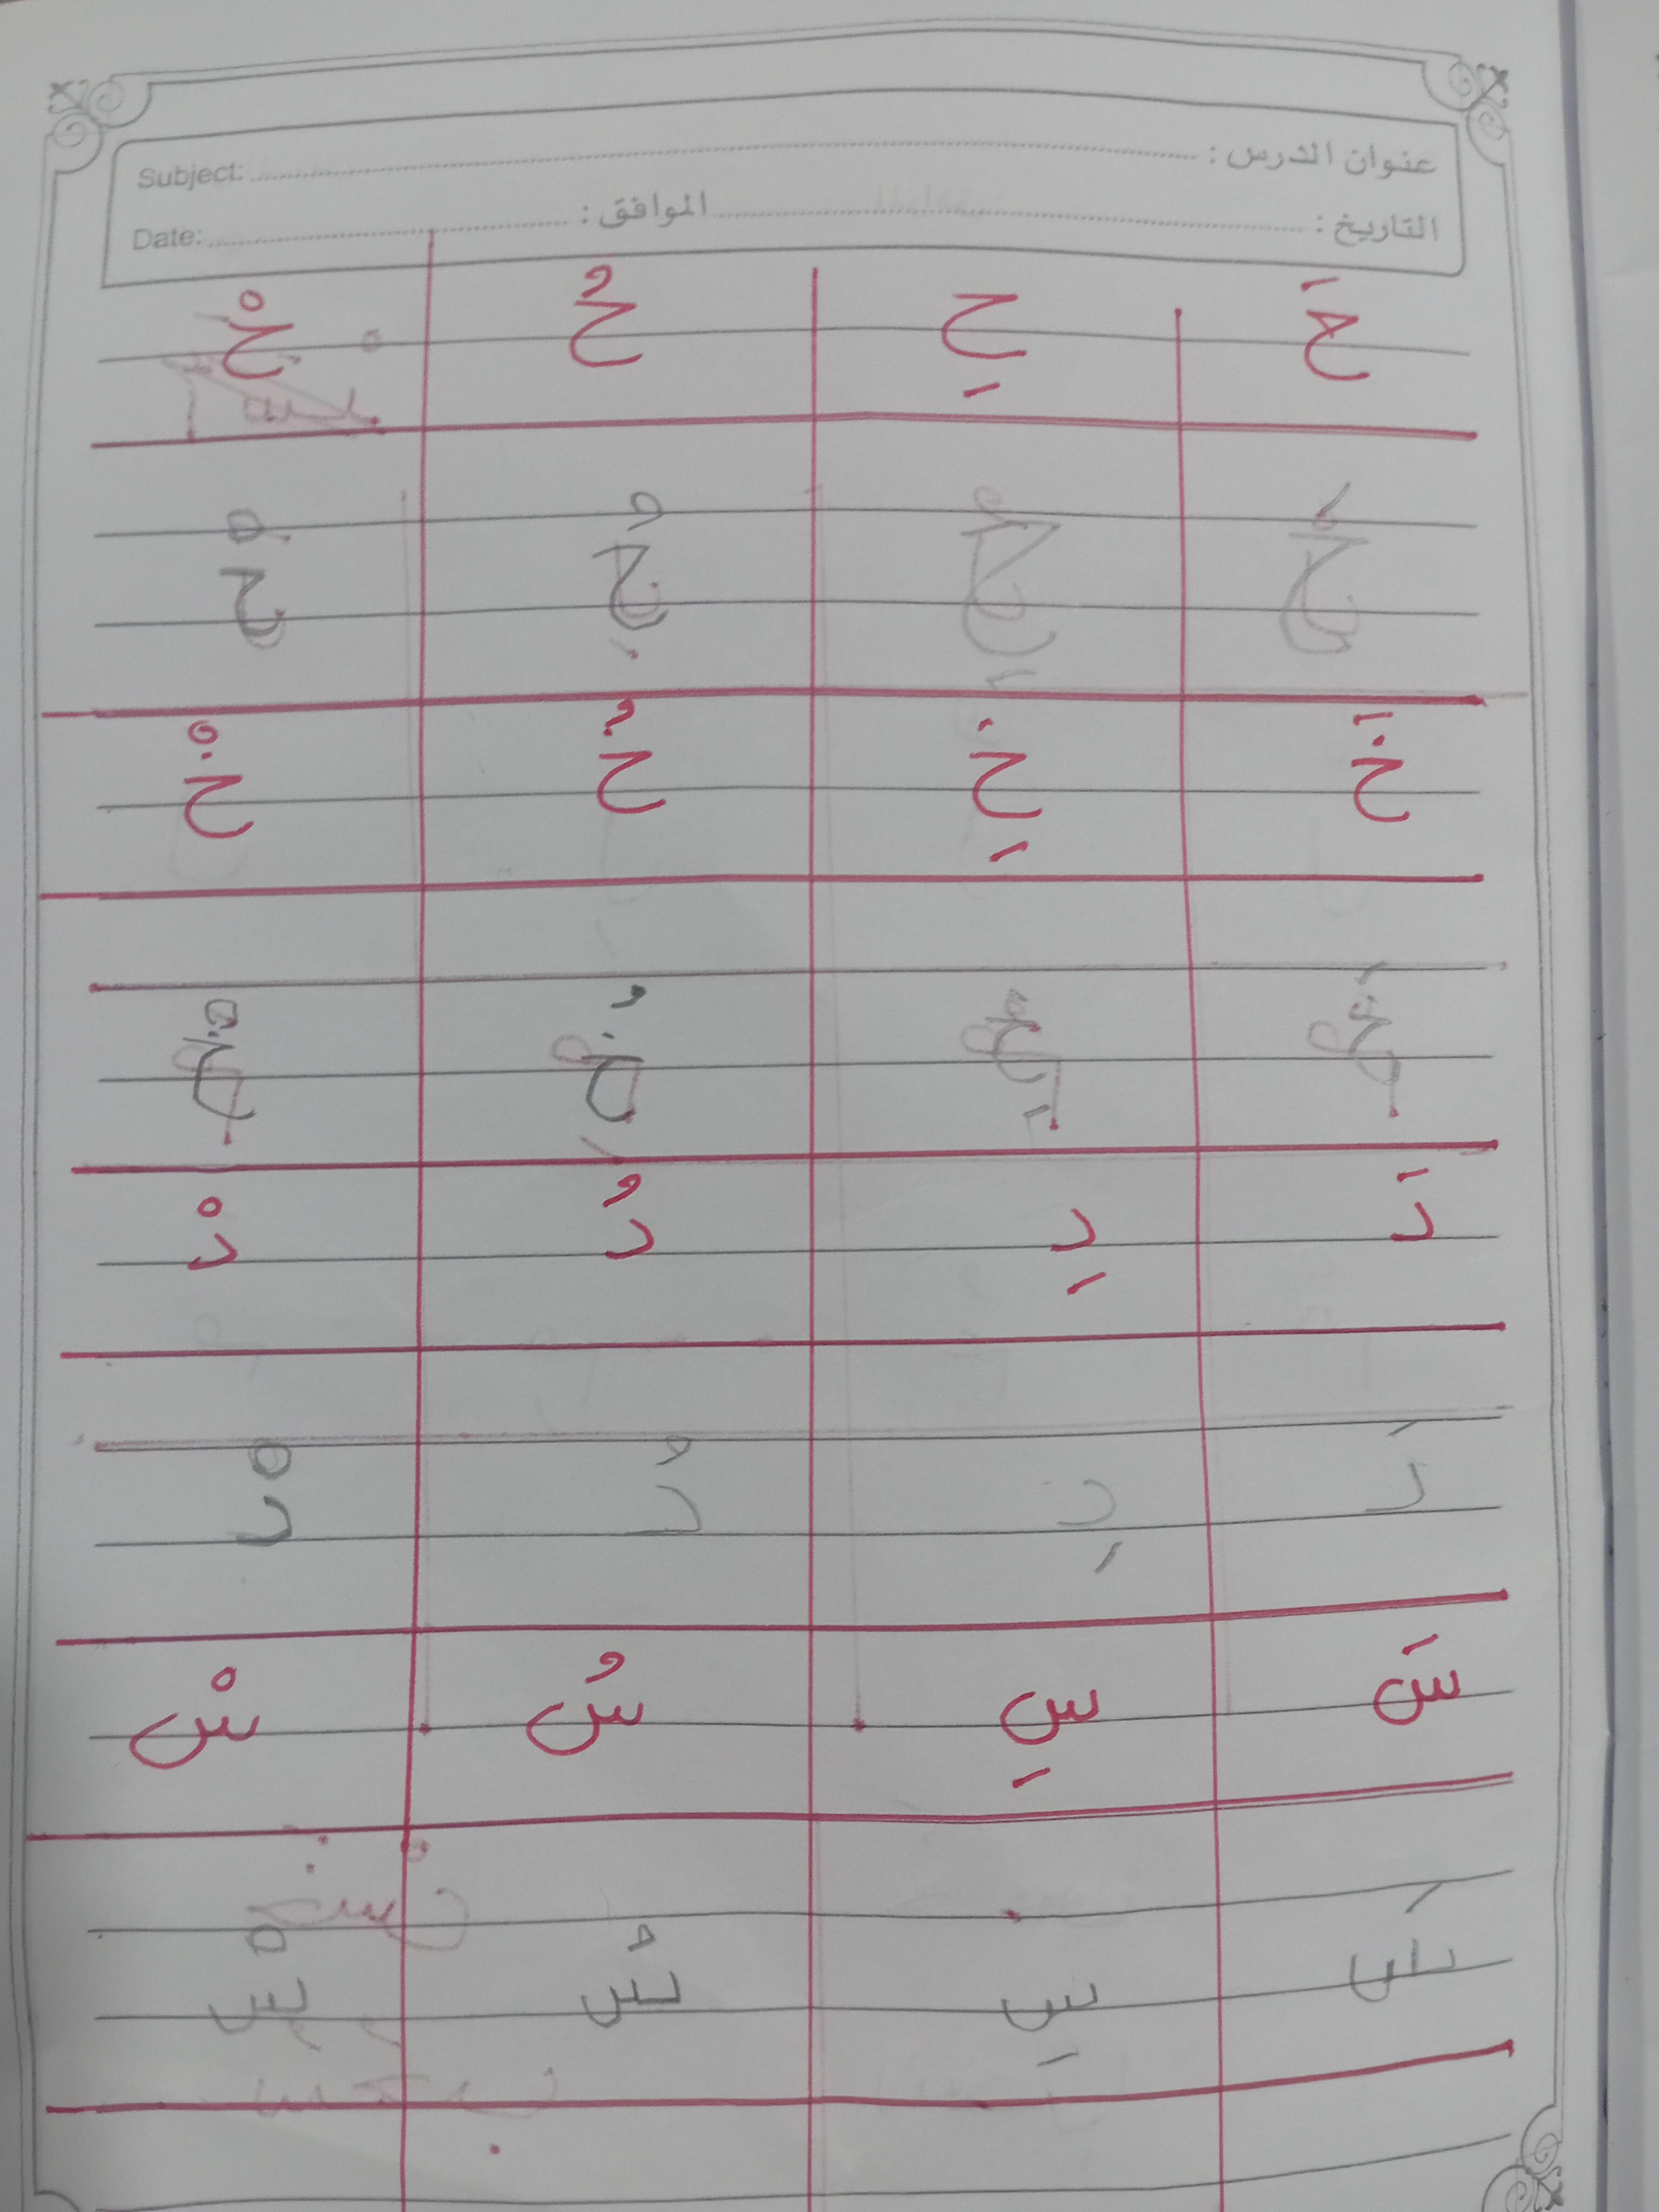 عنوان الدرس : Subject:
التاريخ : الموافق : Date:
حَ حِ حُ حْ
حَ حِ حُ حْ
خَ خِ خُ خْ
خَ خِ خُ خْ
دَ دِ دُ دْ
دَ دِ دُ دْ
سَ سِ سُ سْ
سَ سِ سُ سْ